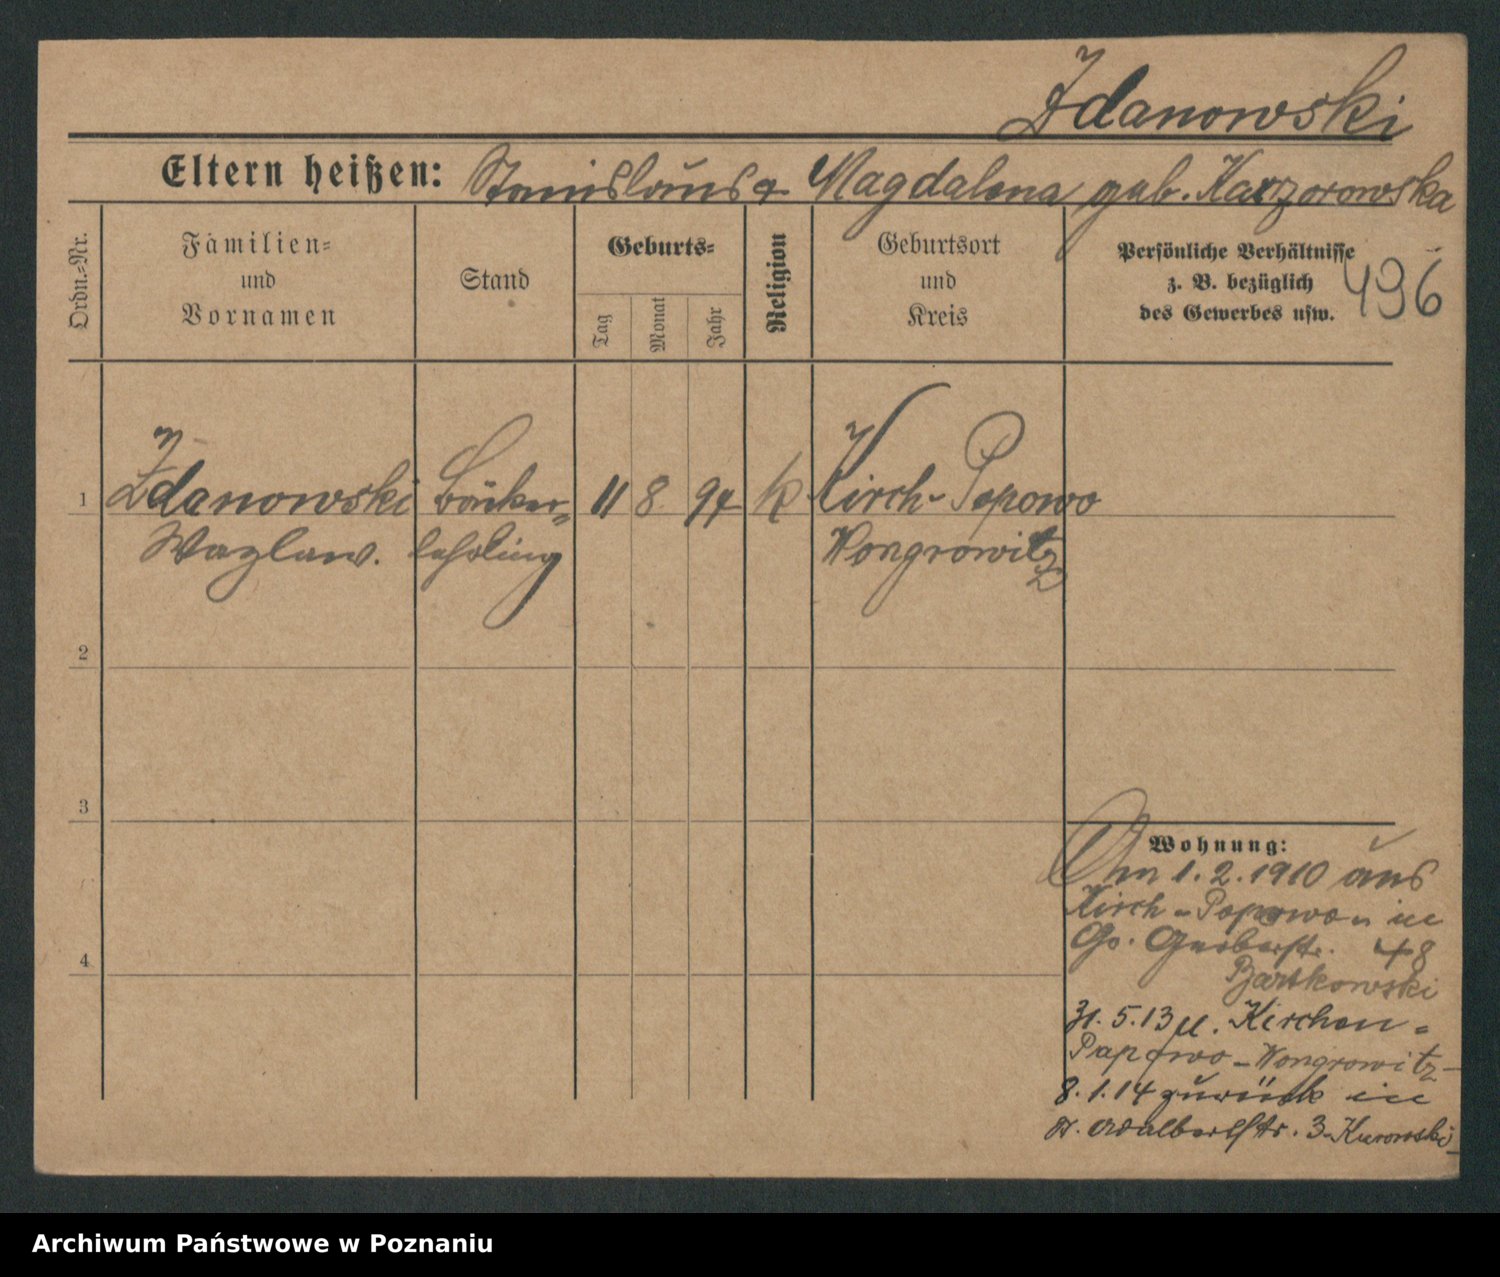 Zdanowski
Eltern heißen: Stanislaus & Magdalena geb. Kaczorowska
Ordn.-Nr.
Familien-
und
Vornamen
Stand
Geburts-
Tag
Monat
Jahr
Religion
Geburtsort
und
Kreis
Persönliche Verhältnisse
z. B. bezüglich
des Gewerbes usw.
496
1 Zdanowski Bäcker- 11 8. 94 k Kirch-Popowo
Wazlaw. lehrling Wongrowitz
2
3
4
Wohnung:
Am 1.2.1910 aus
Kirch-Popowo in
Go. Gerberstr. 48
Bartkowski
31.5.13 n. Kirchen-
Popowo-Wongrowitz-
8.1.14 zurück in
St. Adalbertstr. 3-Kurowski-
Archiwum Państwowe w Poznaniu